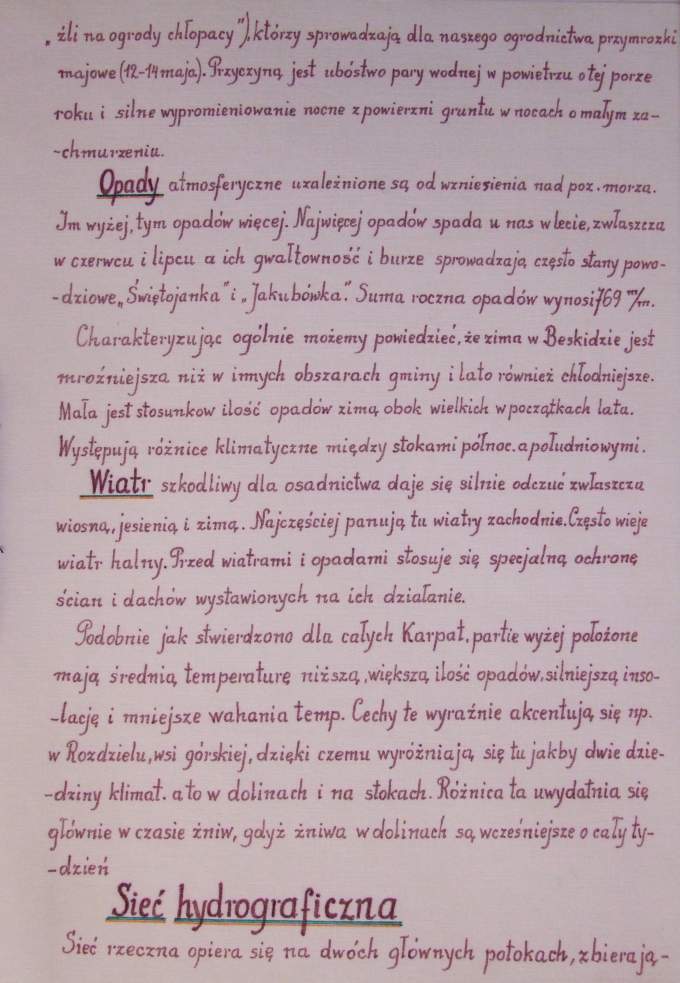 „źli na ogrody chłopacy"), którzy sprowadzają dla naszego ogrodnictwa przymrozki
majowe (12-14 maja). Przyczyną jest ubóstwo pary wodnej w powietrzu o tej porze
roku i silne wypromieniowanie nocne z powierzni gruntu w nocach o małym za-
-chmurzeniu.
Opady atmosferyczne uzależnione są od wzniesienia nad poz. morza.
Im wyżej, tym opadów więcej. Najwięcej opadów spada u nas w lecie, zwłaszcza
w czerwcu i lipcu a ich gwałtowność i burze sprowadzają często stany powo-
-dziowe „Świętojanka" i „Jakubówka". Suma roczna opadów wynosi 769 m/m.
Charakteryzując ogólnie możemy powiedzieć, że zima w Beskidzie jest
mroźniejsza niż w innych obszarach gminy i lato również chłodniejsze.
Mała jest stosunkow ilość opadów zimą obok wielkich w początkach lata.
Występują różnice klimatyczne między stokami północ. a południowymi.
Wiatr szkodliwy dla osadnictwa daje się silnie odczuć zwłaszcza
wiosną, jesienią i zimą. Najczęściej panują tu wiatry zachodnie. Często wieje
wiatr halny. Przed wiatrami i opadami stosuje się specjalną ochronę
ścian i dachów wystawionych na ich działanie.
Podobnie jak stwierdzono dla całych Karpat, partie wyżej położone
mają średnią temperaturę niższą, większą ilość opadów, silniejszą inso-
-lację i mniejsze wahania temp. Cechy te wyraźnie akcentują się np.
w Rozdzielu, wsi górskiej, dzięki czemu wyróżniają się tu jakby dwie dzie-
-dziny klimat. a to w dolinach i na stokach. Różnica ta uwydatnia się
głównie w czasie żniw, gdyż żniwa w dolinach są wcześniejsze o cały ty-
-dzień
Sieć hydrograficzna
Sieć rzeczna opiera się na dwóch głównych potokach, zbierają-